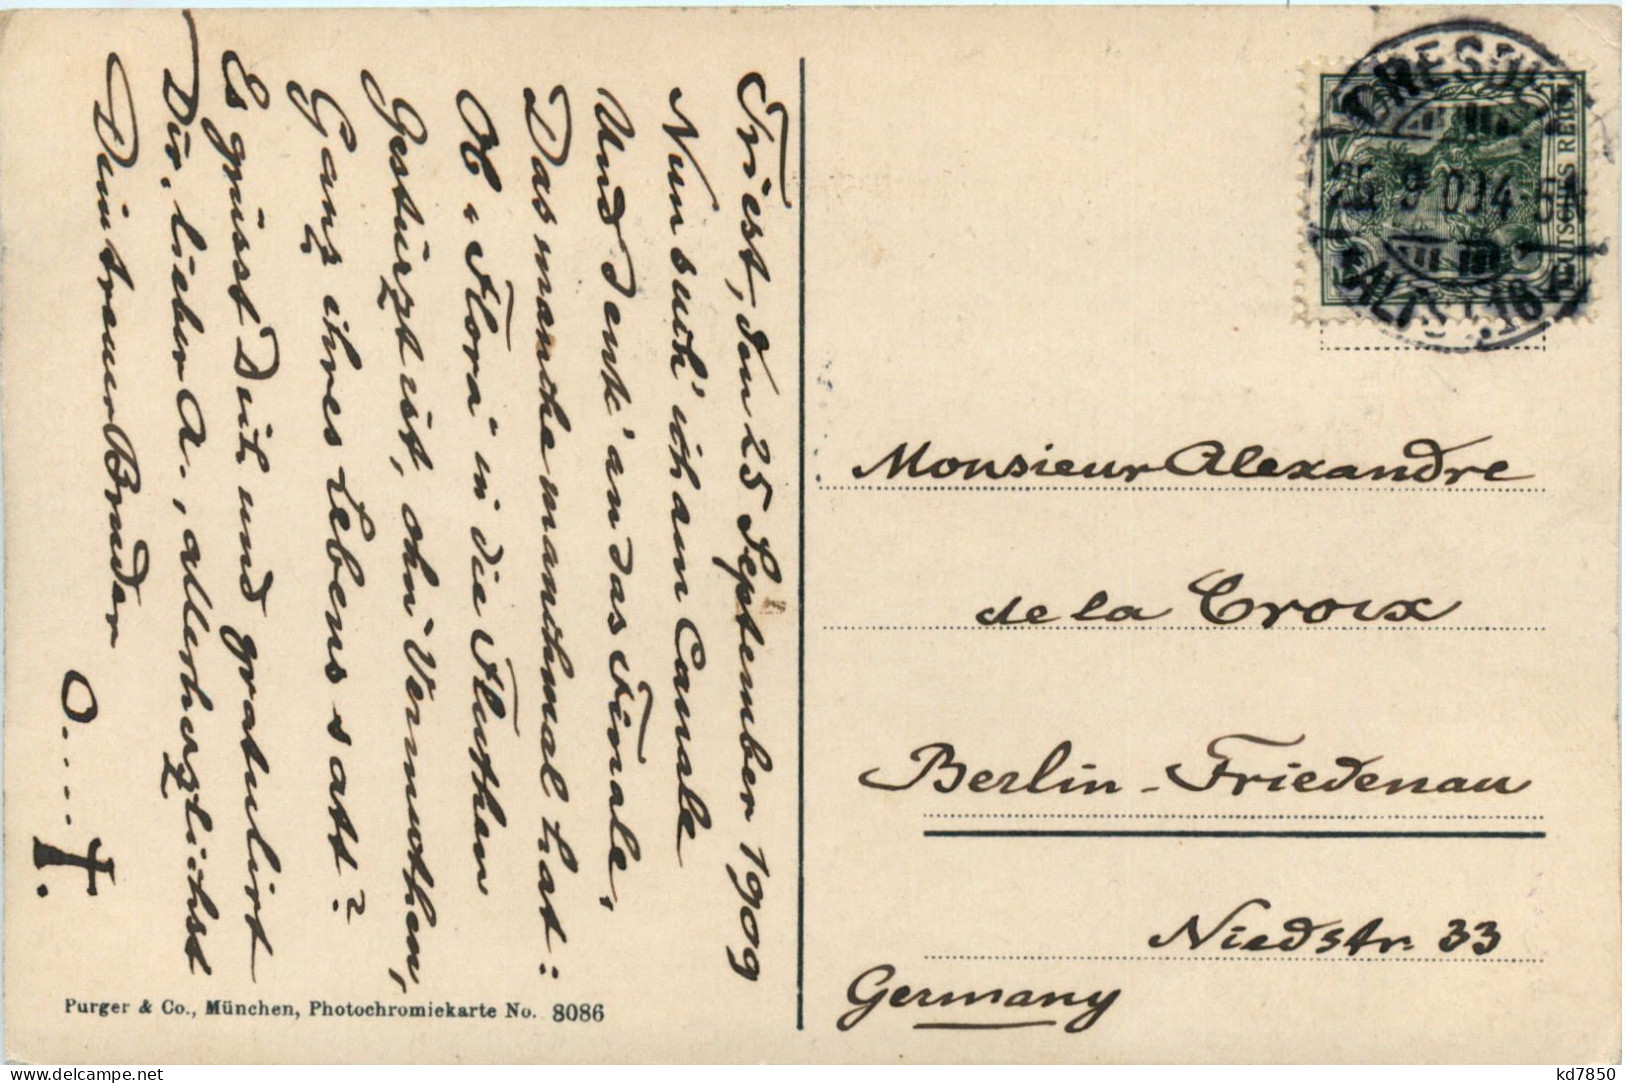 Triest, den 25 September 1909
Nun such' ich am Canale
Und denk' an das Finale,
Das manche manchmal hat:
Ob „Flora" in die Fluthen
Gestürzt ist, ohn' Vermuthen,
Ganz ihres Lebens satt?
Es grüsst Dich und gratulirt
Dir, lieber A., allerherzlichst
Dein treuer Bruder
O....T.
DEUTSCHES REICH
25 9 09 4-5N
16
Monsieur Alexandre
de la Croix
Berlin-Friedenau
Niedstr. 33
Germany
Purger & Co., München, Photochromiekarte No. 8086
kd7850